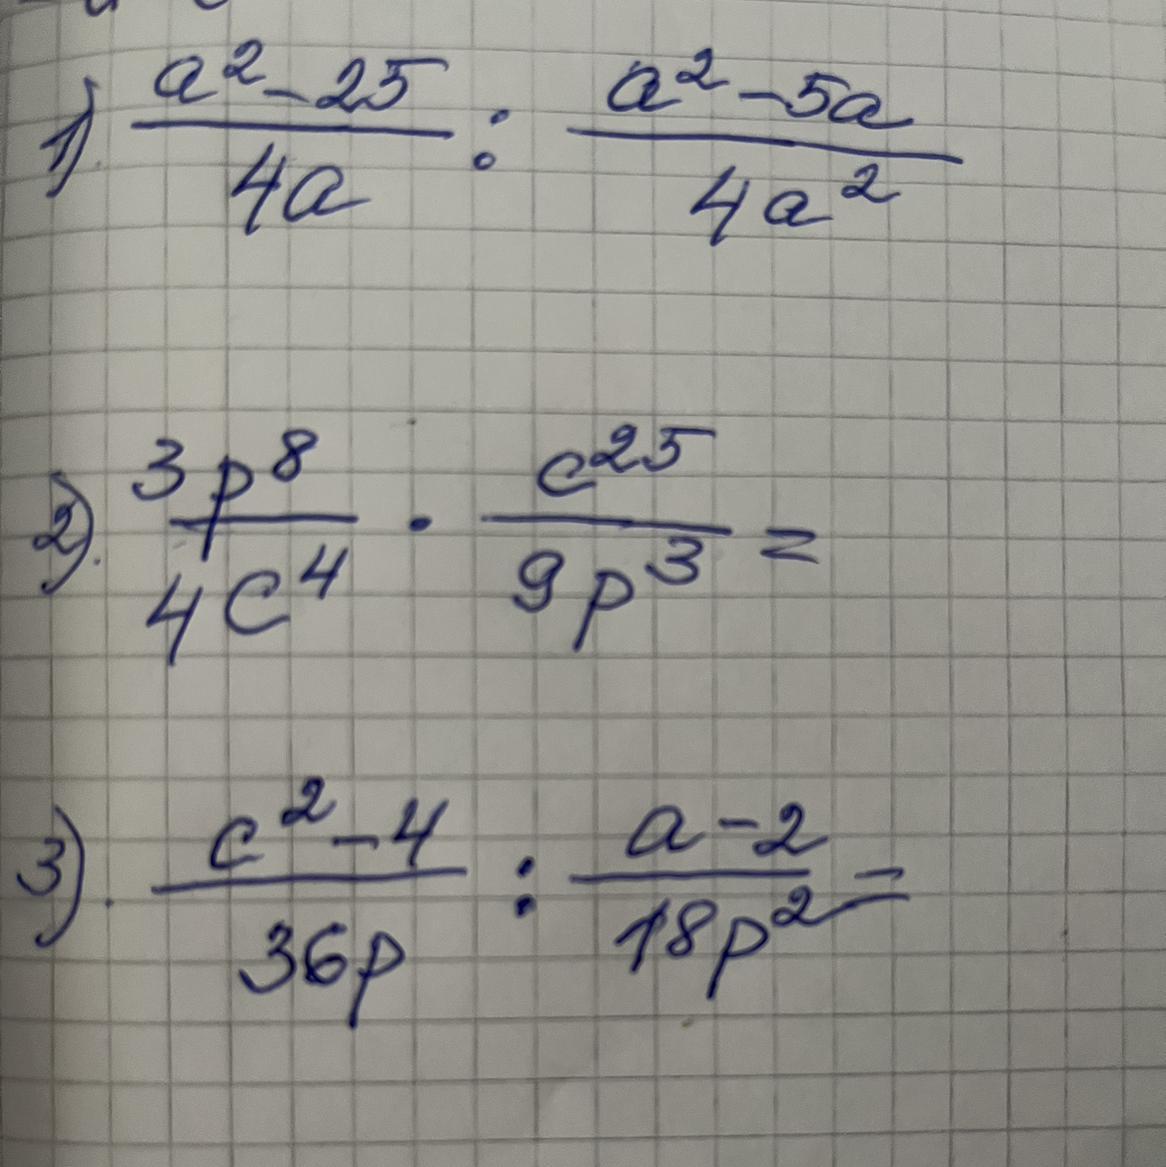 1) (a² - 25)/(4a) : (a² - 5a)/(4a²)
2). 3p⁸/4c⁴ · c²⁵/9p³ =
3). (c² - 4)/(36p) : (a - 2)/(18p²) =